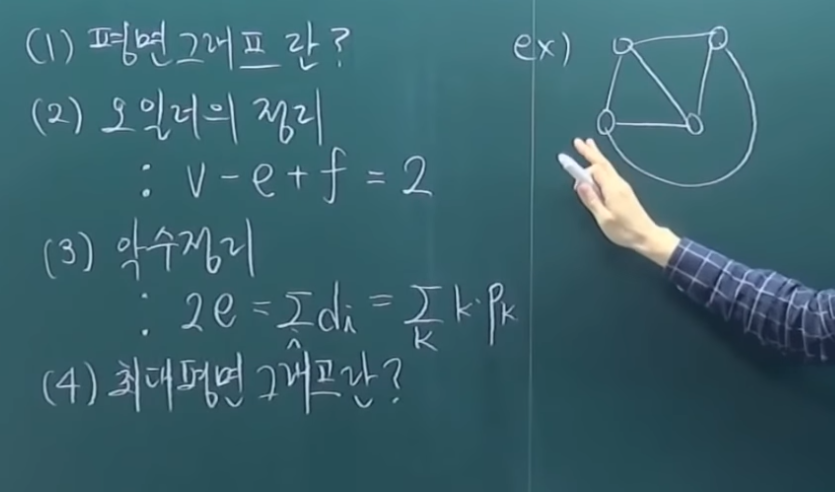 (1) 평면그래프란?
ex)
(2) 오일러의 정리
: v - e + f = 2
(3) 악수정리
: 2e = Σ_i d_i = Σ_k k·p_k
(4) 최대평면그래프란?